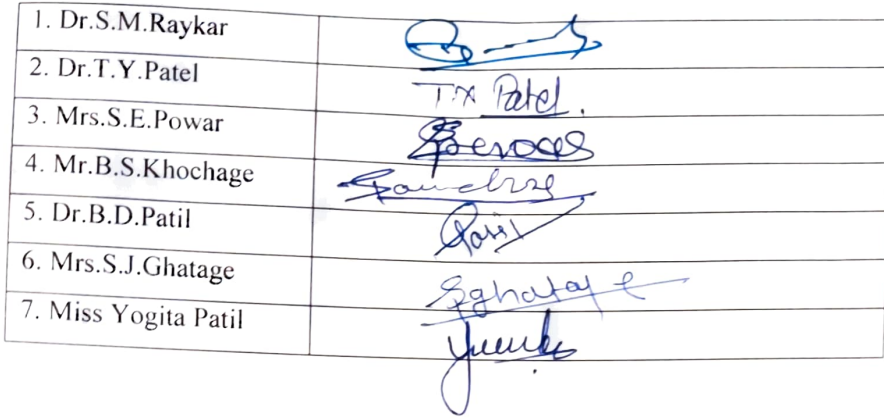 1. Dr.S.M.Raykar
2. Dr.T.Y.Patel
T.Y Patel.
3. Mrs.S.E.Powar
4. Mr.B.S.Khochage
5. Dr.B.D.Patil
6. Mrs.S.J.Ghatage
Sghatage
7. Miss Yogita Patil